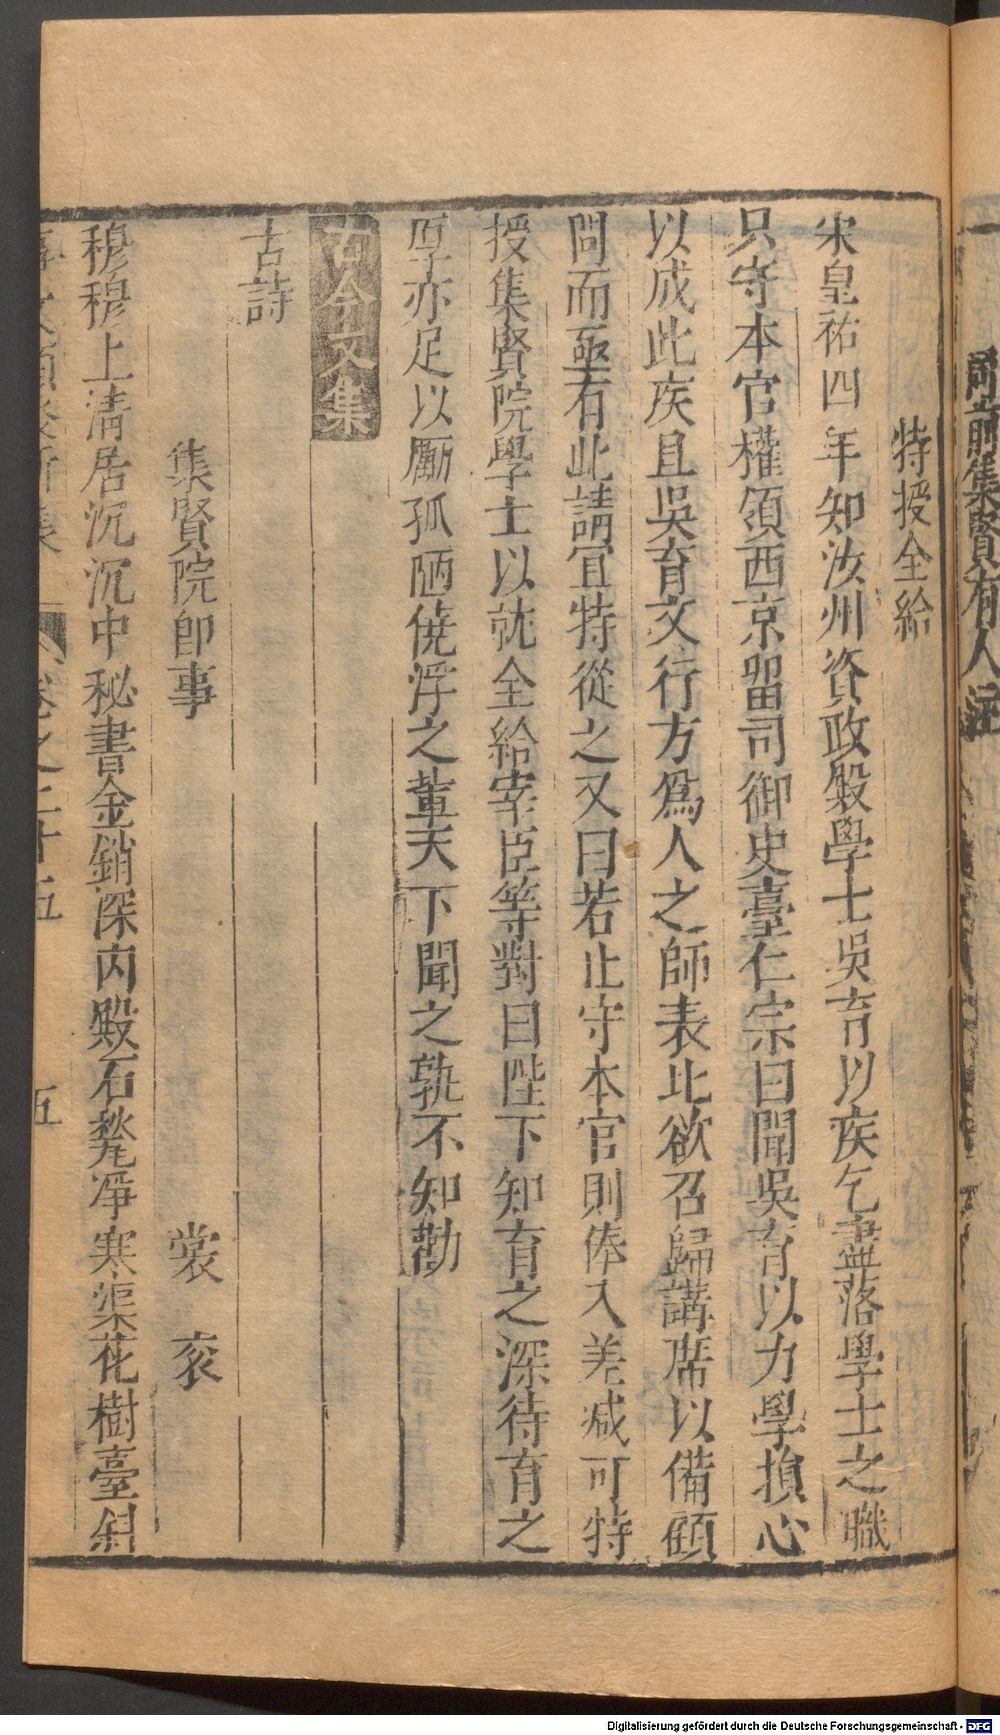 同前集賢有人注
特授全給
宋皇祐四年知汝州資政殿學士吳育以疾乞盡落學士之職
只守本官權領西京留司御史臺仁宗曰聞吳育以力學損心
以成此疾且吳育文行方爲人之師表比欲召歸講席以備顧
問而亟有此請宜特從之又曰若止守本官則俸入差减可特
授集賢院學士以就全給宰臣等對曰陛下知育之深待育之
厚亦足以勵孤陋僥浮之輩天下聞之孰不知勸
古今文集
古詩
集賢院卽事 裳 衮
穆穆上清居沉沉中秘書金鋪深内殿石甃淨寒渠花樹臺斜
事文類聚新集 卷之二十五 五
Digitalisierung gefördert durch die Deutsche Forschungsgemeinschaft - DFG